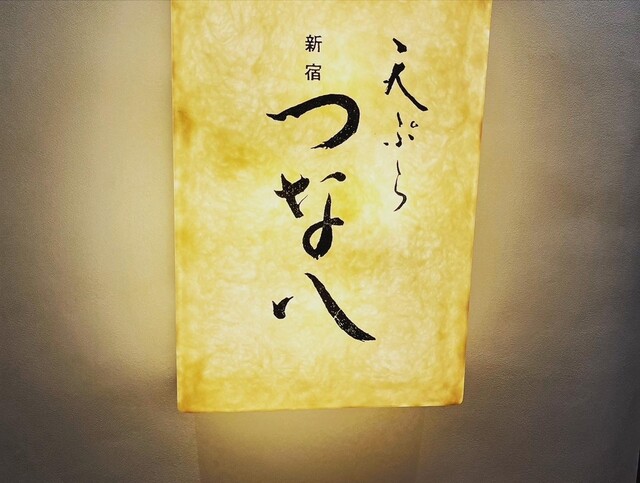 天ぷら
新宿
つな八